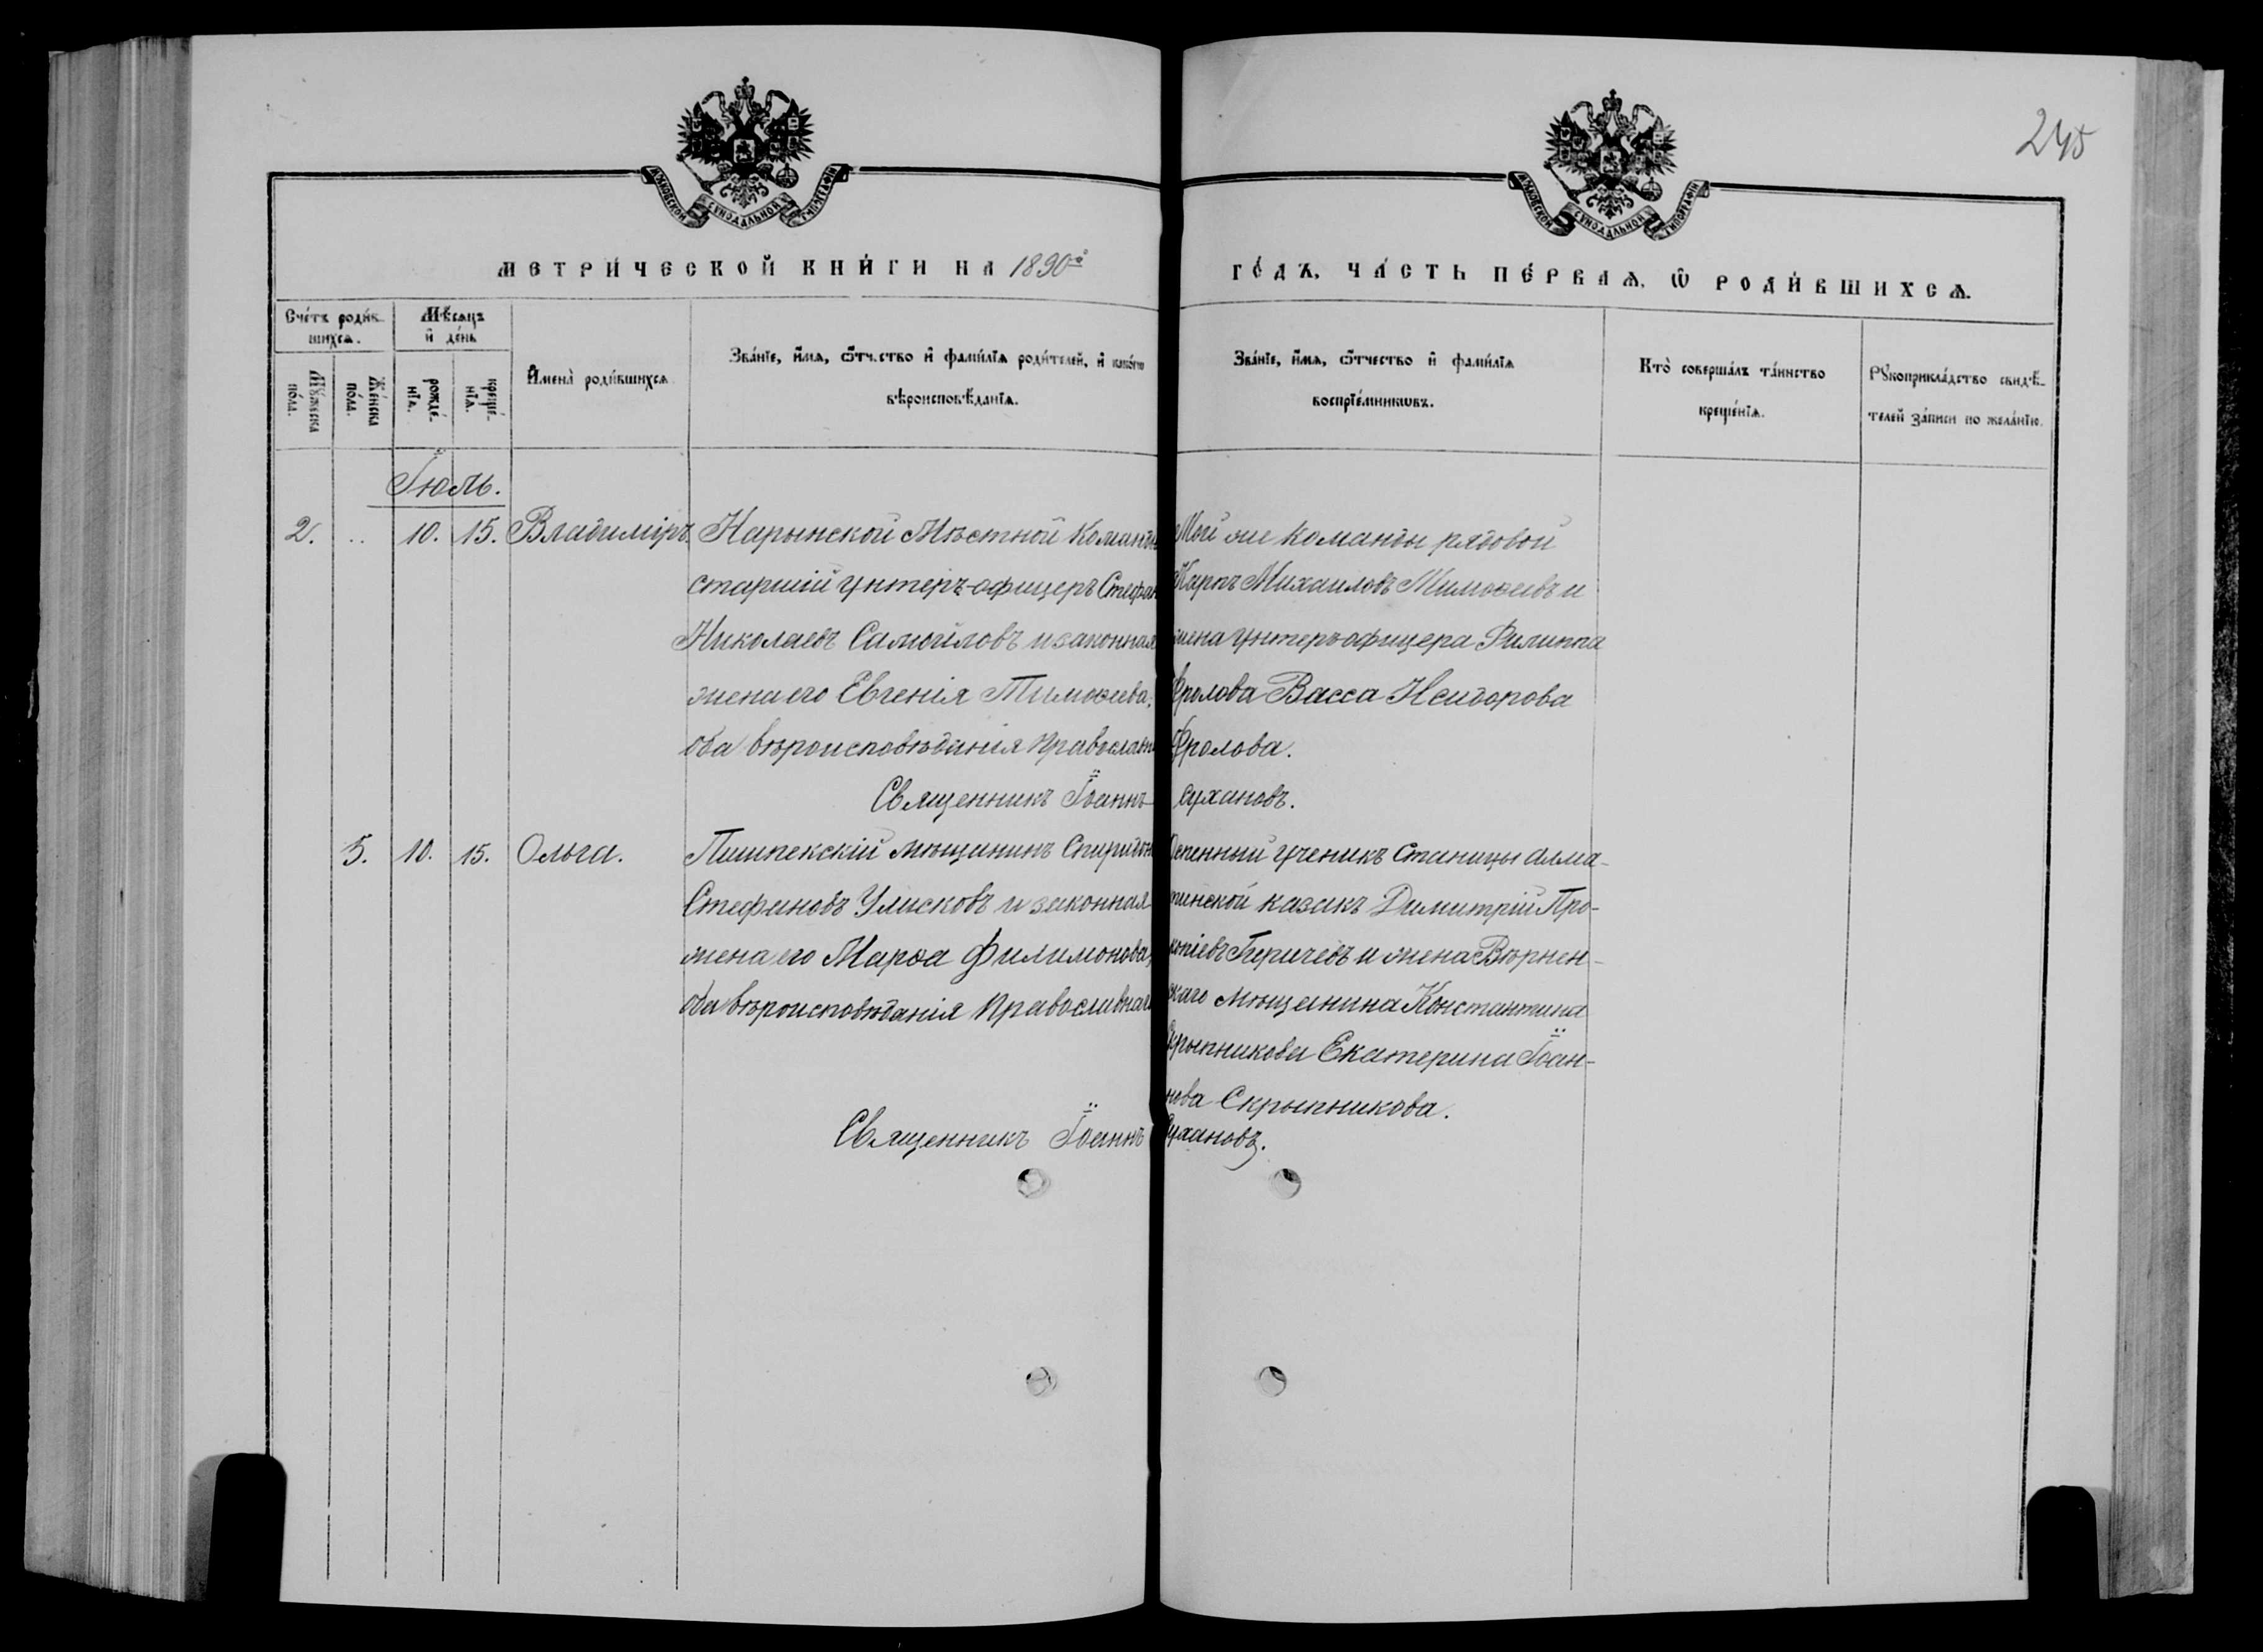 245
МОСКОВСКОЙ СУНОДАЛЬНОЙ ТИПОГРАФІИ
МОСКОВСКОЙ СУНОДАЛЬНОЙ ТИПОГРАФІИ
МЕТРИ́ЧЕСКОЙ КНИ́ГИ НА 1890й
ГО́ДЪ, ЧА́СТЬ ПЕ́РВАЯ, Ѡ РОДИ́ВШИХСЯ.
Сче́тъ роди́в-
шихся.
Мꙋ́жеска по́ла.
Же́нска по́ла.
Мѣ́сяцъ
и де́нь
рожде́-
нїя.
креще́-
нїя.
Имена̀ роди́вшихся.
Зва́нїе, и́мя, ѻ́тчество и фами́лїя роди́телей, и како́гѡ
вѣроисповѣ́данїя.
Зва́нїе, и́мя, ѻ́тчество и фами́лїя
воспрїе́мникѡвъ.
Кто̀ соверша́лъ та́инство
креще́нїя.
Рꙋкоприкла́дство свидѣ́-
телей за́писи по жела́нїю.
Іюль.
2. .. 10. 15. Владиміръ. Нарынской Мѣстной Команды
старшій унтеръ-офицеръ Стефан
Николаевъ Самойловъ и законная
жена его Евгенія Тимоѳеева,
оба вѣроисповѣданія православн
Той же команды рядовой
Карпъ Михаиловъ Тимоѳеевъ и
жена унтеръ-офицера Филиппа
Фролова Васса Исидорова
Фролова.
Священникъ Іоаннъ Сухановъ.
5. 10. 15. Ольга. Пишпекскій мѣщанинъ Спиридон
Стефановъ Улисковъ и законная
жена его Марѳа Филимонова,
оба вѣроисповѣданія Православнаго
Оспенный ученикъ станицы Алма-
тинской казакъ Димитрій Про-
копіевъ и жена Вѣрнен-
скаго мѣщанина Константина
Скрыпникова Екатерина Іоан-
нова Скрыпникова.
Священникъ Іоаннъ Сухановъ.